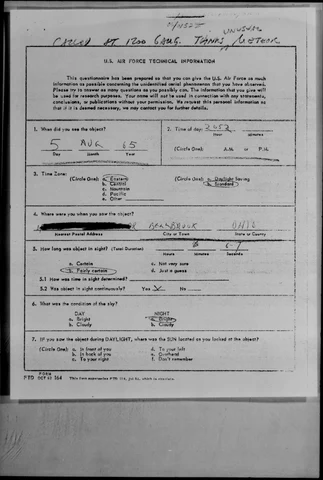 CALLED AT 1200 6 AUG. THINKS METEOR
UNUSUAL
U.S. AIR FORCE TECHNICAL INFORMATION
This questionnaire has been prepared so that you can give the U.S. Air Force as much
information as possible concerning the unidentified aerial phenomenon that you have observed.
Please try to answer as many questions as you possibly can. The information that you give will
be used for research purposes. Your name will not be used in connection with any statements,
conclusions, or publications without your permission. We request this personal information so
that if it is deemed necessary, we may contact you for further details.
1. When did you see the object?
5 AUG 65
Day Month Year
2. Time of day:
Hour Minutes
(Circle One): A.M. or P.M.
3. Time Zone:
(Circle One): a. Eastern
b. Central
c. Mountain
d. Pacific
e. Other
(Circle One): a. Daylight Saving
b. Standard
4. Where were you when you saw the object?
OHIO
Nearest Postal Address City or Town State or County
5. How long was object in sight? (Total Duration) 6-7
Hours Minutes Seconds
a. Certain c. Not very sure
b. Fairly certain d. Just a guess
5.1 How was time in sight determined?
5.2 Was object in sight continuously? Yes X No
6. What was the condition of the sky?
DAY NIGHT
a. Bright a. Bright
b. Cloudy b. Cloudy
7. IF you saw the object during DAYLIGHT, where was the SUN located as you looked at the object?
(Circle One): a. In front of you d. To your left
b. In back of you e. Overhead
c. To your right f. Don't remember
FORM
FTD OCT 62 164 This form supersedes FTD 164,